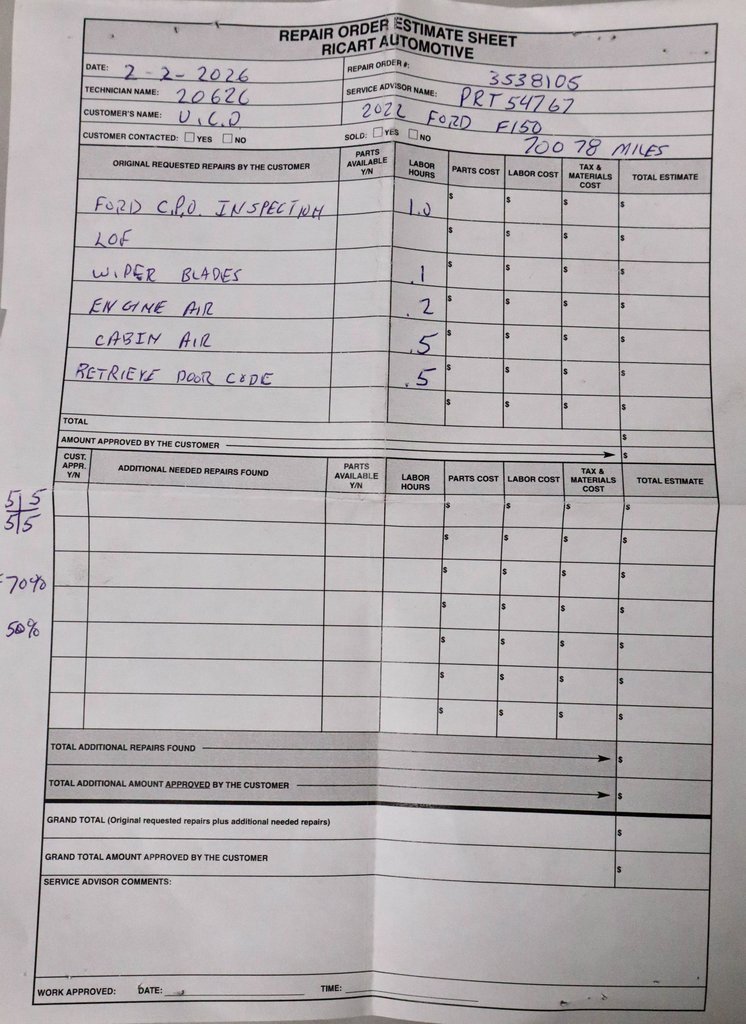 REPAIR ORDER ESTIMATE SHEET
RICART AUTOMOTIVE
DATE: 2-2-2026 REPAIR ORDER #: 3538105
TECHNICIAN NAME: 20626 SERVICE ADVISOR NAME: PRT 54767
CUSTOMER'S NAME: U.C.O 2022 FORD F150
CUSTOMER CONTACTED: YES NO SOLD: YES NO 70078 MILES
ORIGINAL REQUESTED REPAIRS BY THE CUSTOMER PARTS AVAILABLE Y/N LABOR HOURS PARTS COST LABOR COST TAX & MATERIALS COST TOTAL ESTIMATE
FORD C.P.O. INSPECTION 1.0 $ $ $ $
LOF $ $ $ $
WIPER BLADES .1 $ $ $ $
ENGINE AIR .2 $ $ $ $
CABIN AIR .5 $ $ $ $
RETRIEVE DOOR CODE .5 $ $ $ $
$ $ $ $
TOTAL $
AMOUNT APPROVED BY THE CUSTOMER $
CUST. APPR. Y/N ADDITIONAL NEEDED REPAIRS FOUND PARTS AVAILABLE Y/N LABOR HOURS PARTS COST LABOR COST TAX & MATERIALS COST TOTAL ESTIMATE
5 5 $ $ $ $
5 5 $ $ $ $
70% $ $ $ $
$ $ $ $
50% $ $ $ $
$ $ $ $
$ $ $ $
TOTAL ADDITIONAL REPAIRS FOUND $
TOTAL ADDITIONAL AMOUNT APPROVED BY THE CUSTOMER $
GRAND TOTAL (Original requested repairs plus additional needed repairs) $
GRAND TOTAL AMOUNT APPROVED BY THE CUSTOMER $
SERVICE ADVISOR COMMENTS:
WORK APPROVED: DATE: TIME: